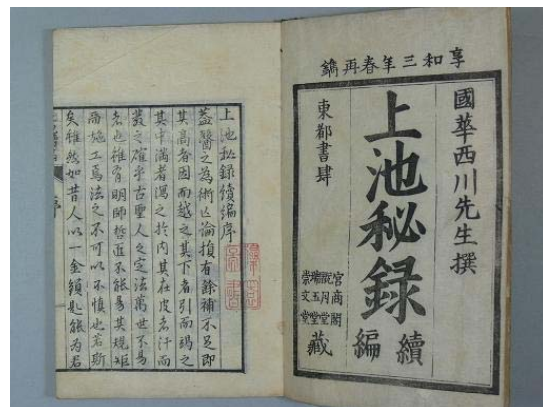 享和三年春再鐫
國華西川先生撰
上池秘録
續編
東都書肆
宮商閣
瑞玉堂
崇文堂
藏
上池秘録續編序
蓋醫之為術也論損有餘補不足即
其高者因而越之其下者引而竭之
其中満者瀉之於内其在皮者汗而
發之確乎古聖人之定法萬世不易
者也雖有明師哲匠不能易其規矩
而施工焉法之不可以不慎也若斯
矣雖然如昔人以一金鎖匙能為君